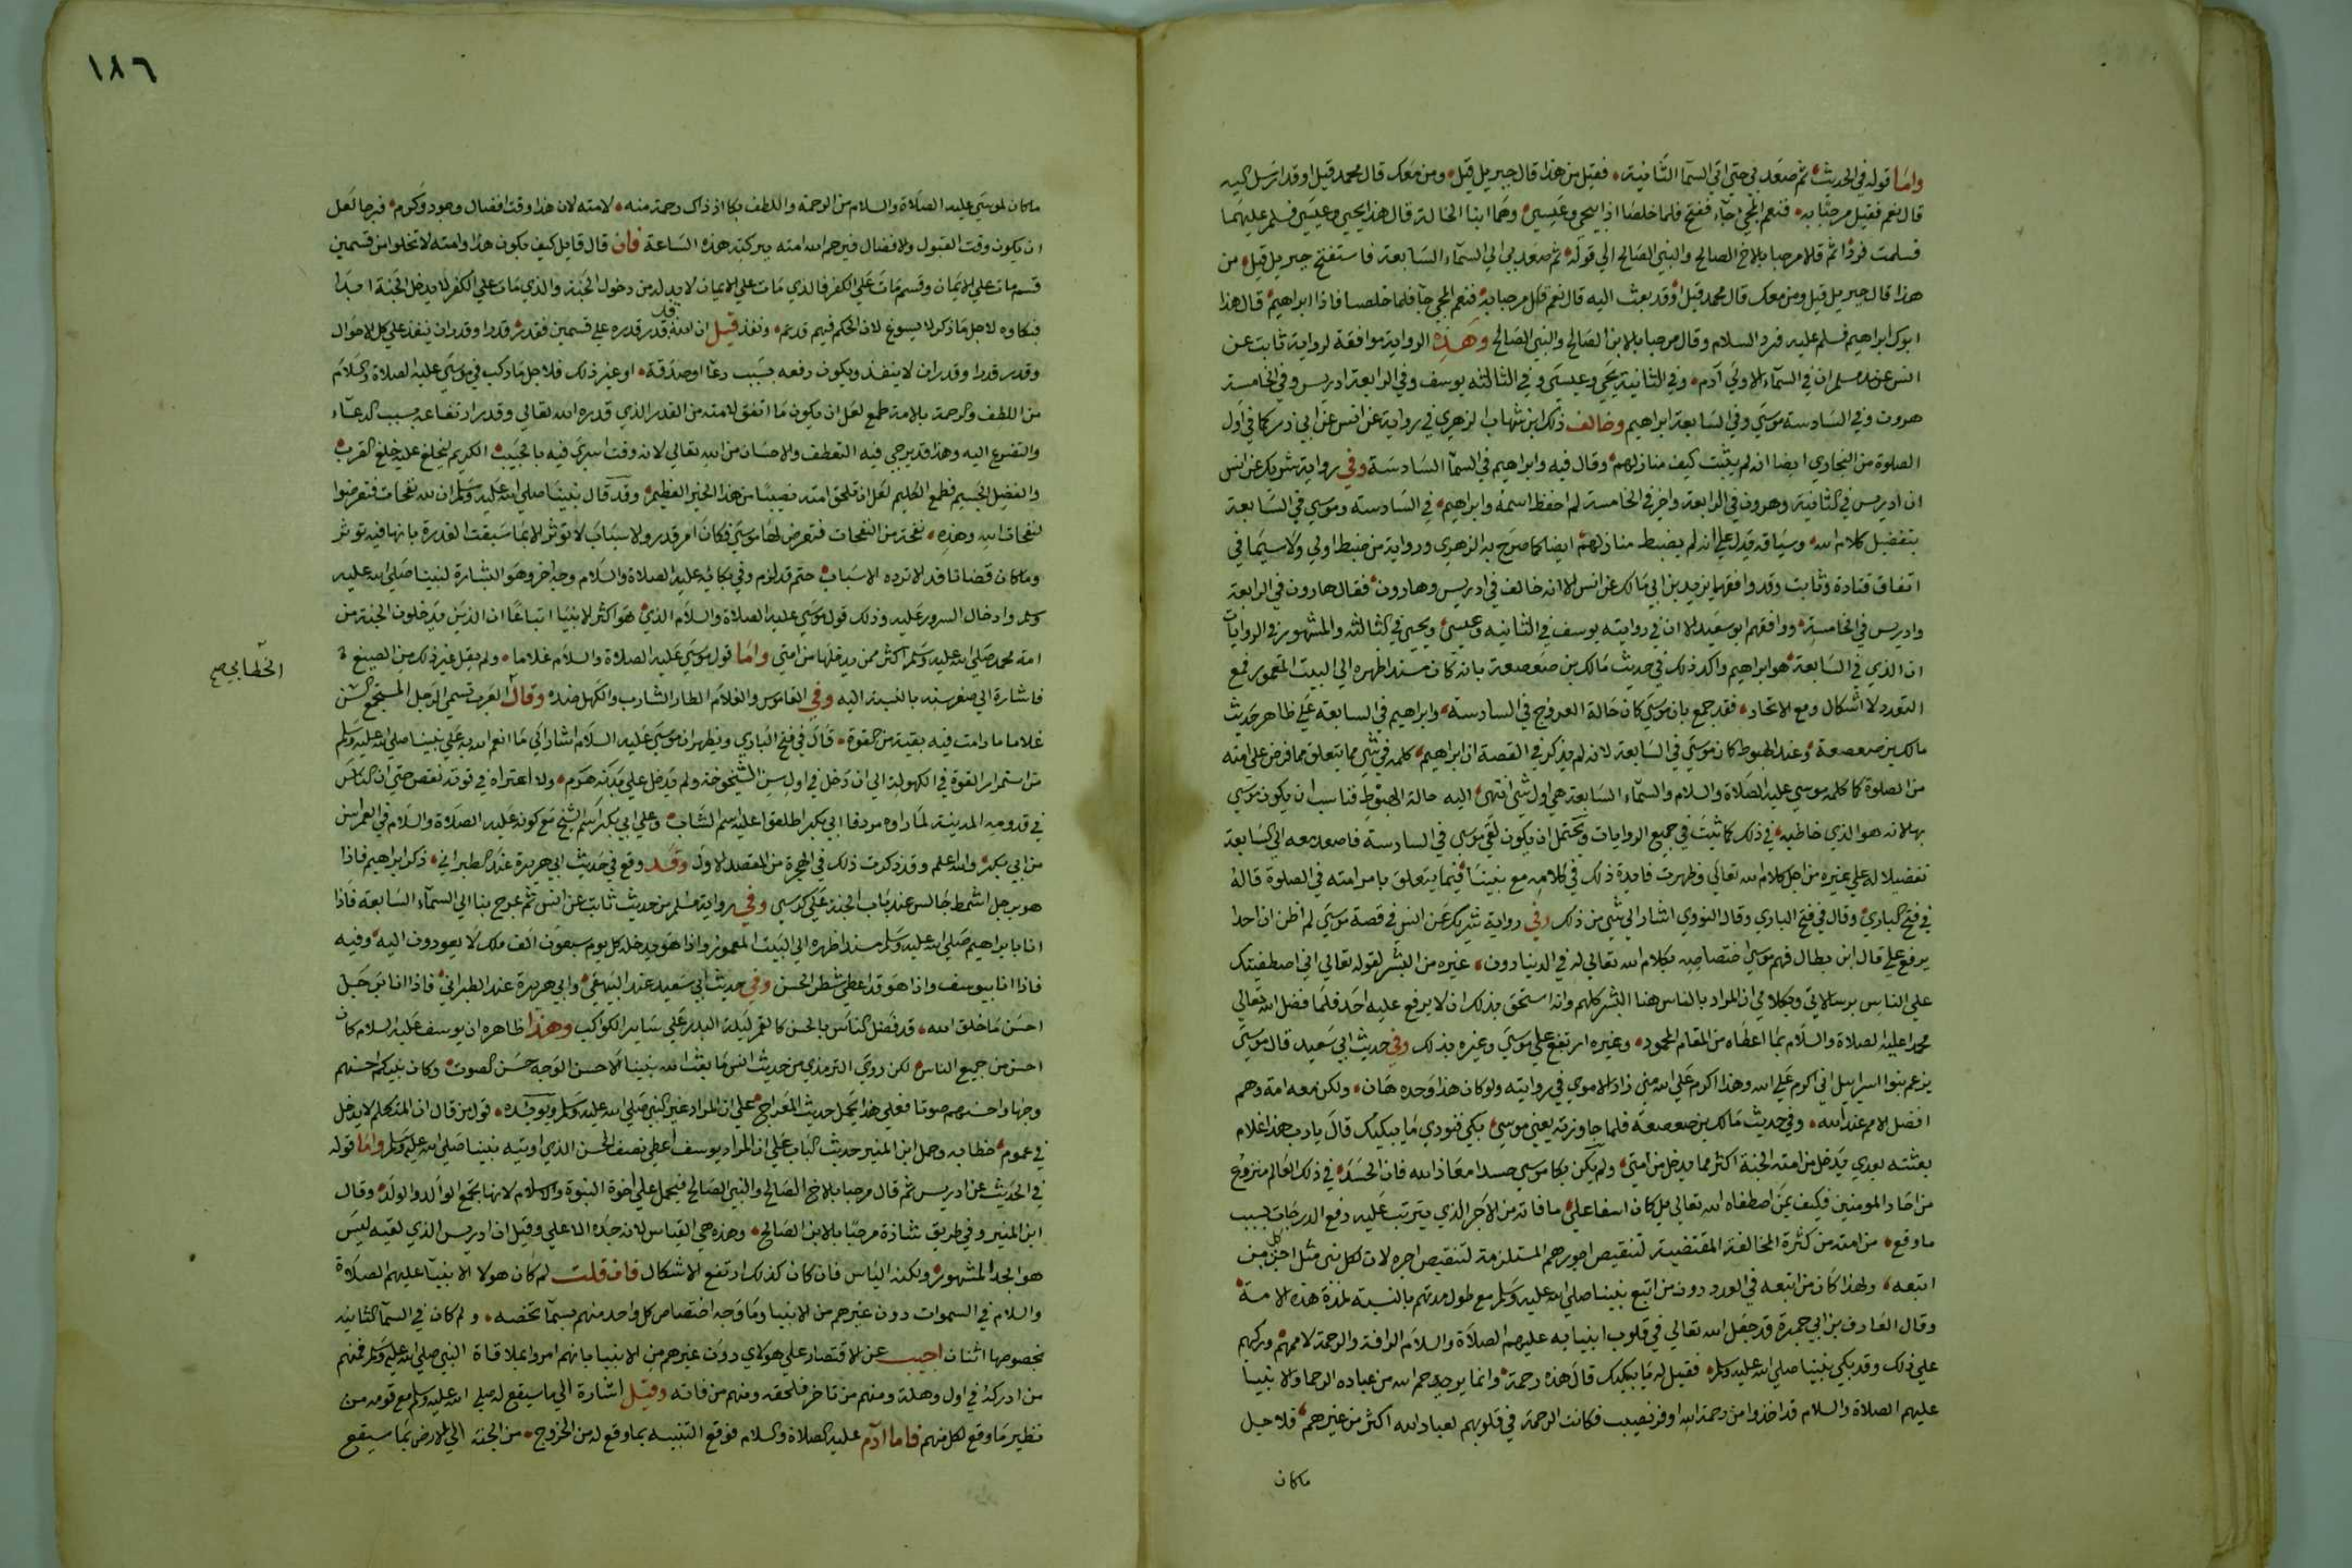 واما قوله في الحديث ثم صعد بي حتى اتي السمآ الثانية فقيل من هذا قال جبريل قيل ومن معك قال محمد قيل اوقد ارسل اليه
قال نعم فقيل مرحبا به فنعم المجي جآء ففتح فلما خلصت اذا بيحي وعيسى وهما ابنا الخالة قال هذا يحيى وعيسى فسلم عليهما
فسلمت فردا ثم قالا مرحبا بالاخ الصالح والنبي الصالح الي قوله ثم صعد بي الي السمآء السابعة فاستفتح جبريل قيل من
هذا قال جبريل قيل ومن معك قال محمد قيل اوقد بعث اليه قال نعم قيل مرحبا به فنعم المجي جآ فلما خلصت فاذا ابراهيم قال هذا
ابوك ابراهيم فسلم عليه فرد السلام وقال مرحبا بالابن الصالح والنبي الصالح وهذه الرواية موافقة لرواية ثابت عن
انس عند مسلم ان في السمآء الاولي آدم وفي الثانية يحي وعيسى وفي الثالثة يوسف وفي الرابعة ادريس وفي الخامسة
هرون وفي السادسة موسي وفي السابعة ابراهيم وخالف ذلك ابن شهاب الزهري في روايته عن انس عن ابي ذر كما في اول
الصلوة من البخاري ايضا انه لم يثبت كيف منازلهم وقال فيه وابراهيم في السمآ السادسة وفي رواية شريك عن انس
ان ادريس في الثانية وهرون في الرابعة واخر في الخامسة لم احفظ اسمه وابراهيم في السادسة وموسي في السابعة
بتفضيل كلام الله وسياقه يدل علي انه لم يضبط منازلهم ايضا كما صرح به الزهري ورواية من ضبط اولي ولا سيما في
اتفاق قتادة وثابت وقد وافقهما يزيد بن ابي مالك عن انس الا انه خالف في ادريس وهارون فقال هارون في الرابعة
وادريس في الخامسة ووافقهم ابو سعيد الا ان في روايته يوسف في الثانية وعيسى ويحيى في الثالثة والمشهور في الروايات
ان الذي في السابعة هو ابراهيم واكد ذلك في حديث مالك بن صعصعة بانه كان مسندا ظهره الي البيت المعمور فمع
التعدد لا اشكال ومع الاتحاد فقد جمع بان موسى كان حالة العروج في السادسة وابراهيم في السابعة علي ظاهر حديث
مالك بن صعصعة وعند الهبوط كان موسى في السابعة لانه لم يذكر في القصة ان ابراهيم كلمه في شي مما يتعلق مما فرض على امته
من الصلوة كما كلمه موسي عليه الصلاة والسلام والسمآء السابعة هي اول شي انتهى اليه حالة الهبوط فناسب ان يكون موسي
بها لانه هو الذي خاطبه في ذلك كما ثبت في جميع الروايات ويحتمل ان يكون لقي موسى في السادسة فاصعد معه الي السابعة
تفضيلا له علي غيره من اجل كلام الله تعالي وظهرت فايدة ذلك في كلامه مع نبينا فيما يتعلق بامر امته في الصلوة قاله
في فتح الباري وقال في فتح الباري وقال النووي اشار الي شي من ذلك وفي رواية شريك عن انس في قصة موسى لم اظن ان احدا
يرفع علي قال ابن بطال فهم موسي اختصاصه بكلام الله تعالي له في الدنيا دون غيره من البشر لقوله تعالي اني اصطفيتك
علي الناس برسالاتي وبكلامي ان المراد بالناس هنا البشر كلهم وانه استحق بذلك ان لا يرفع عليه احد فلما فضل الله تعالي
محمدا عليه الصلاة والسلام بما اعطاه من المقام المحمود وغيره ارتفع علي موسي وغيره بذلك وفي حديث ابي سعيد قال موسي
يزعم بنوا اسرائيل اني اكرم علي الله وهذا اكرم علي الله مني زاد الاموي في روايته ولو كان هذا وحده هان ولكن معه امته وهم
افضل الامم عند الله وفي حديث مالك بن صعصعة فلما جاوزته يعني موسي بكي فنودي ما يبكيك قال يارب هذا غلام
بعثته بعدي يدخل من امته الجنة اكثر مما يدخل من امتي ولم يكن بكا موسي حسدا معاذ الله فان الحسد في ذلك العالم منزوع
من احاد المومنين فكيف بمن اصطفاه الله تعالي بل كان اسفا علي ما فاته من الاجر الذي يترتب عليه رفع الدرجات بسبب
ما وقع من امته من كثرة المخالفة المقتضية لتنقيص اجورهم المستلزمة لتنقيص اجره لان لكل نبي مثل اجر كل من
اتبعه ولهذا كان من اتبعه في العدد دون من اتبع نبينا صلي الله عليه وسلم مع طول مدتهم بالنسبة لمدة هذه الامة
وقال العارف بن ابي جمرة قد جعل الله تعالي في قلوب انبيايه عليهم الصلاة والسلام الرافة والرحمة لاممهم وركبهم
علي ذلك وقد بكي نبينا صلي الله عليه وسلم فقيل له ما يبكيك قال هذه رحمة وانما يرحم الله من عباده الرحما والانبيا
عليهم الصلاة والسلام قد اخذوا من رحمة الله اوفر نصيب فكانت الرحمة في قلوبهم لعباد الله اكثر من غيرهم فلاجل
ماكان
١٨٦
ماكان لموسي عليه الصلاة والسلام من الرحمة واللطف بكا اذ ذاك رحمة منه لامته لان هذا وقت افضال وجود وكرم فرجا لعل
ان يكون وقت القبول والافضال فيرحم الله امته ببركة هذه الساعة فان قال قايل كيف يكون هذا وامته لا تخلوا من قسمين
قسم مات علي الايمان وقسم مات علي الكفر فالذي مات علي الايمان لابد له من دخول الجنة والذي مات علي الكفر لا يدخل الجنة ابدا
فبكاوه لاجل ما ذكر لا يسوغ لان الحكم فيهم قد مر ونفذ قيل ان الله قد قدر قدره علي قسمين فقدر قدرا وقدر ان ينفذ علي كل الاحوال
وقدر قدرا وقدر ان لا ينفذ ويكون رفعه بسبب دعآ او صدقة او غير ذلك فلاجل ما ركب في موسي عليه الصلاة والسلام
من اللطف والرحمة بالامة طمع لعل ان يكون ما اتفق لامته من القدر الذي قدره الله تعالي وقدر ارتفاعه بسبب الدعآء
والتضرع اليه وهذا وقت يرجي فيه التعطف والاحسان من الله تعالي لانه وقت اسري فيه بالحبيب الكريم ليخلع عليه خلع القرب
والفضل الجسيم فطمع الكليم لعل ان تلحق امته نصيبا من هذا الخير العظيم وقد قال نبينا صلي الله عليه وسلم ان لله نفحات فتعرضوا
لنفحات الله وهذه نفحة من النفحات فتعرض لها موسي فكان امر قدر والاسباب لا توثر الا بما سبقت القدرة بانها فيه توثر
وما كان قضا نافذ لا ترده الاسباب حتم قد لزم وفي بكائه عليه الصلاة والسلام وجه اخر وهو البشارة لنبينا صلي الله عليه
وسلم وادخال السرور عليه وذلك قول موسي عليه الصلاة والسلام الذي هو اكثر الانبيا اتباعا ان الذين يدخلون الجنة من
امة محمد صلي الله عليه وسلم اكثر ممن يدخلها من امتي واما قول موسي عليه الصلاة والسلام غلاما ولم يقل غير ذلك من الصيغ
فاشارة الي صغر سنه بالنسبة اليه وفي القاموس والغلام الطار الشارب والكهل ضده وقال العرب تسمي الرجل المستجمع السن
الخطابي صح
غلاما ما دامت فيه بقية من القوة قال في فتح الباري ويظهر ان موسي عليه السلام اشار الي ما انعم الله به علي نبينا صلي الله عليه وسلم
من استمرار القوة في الكهولة الي ان دخل في اول سن الشيخوخة ولم يدخل علي بدنه هرم ولا اعتراه في قوته نقص حتي ان الناس
في قدومه المدينة لما راوه مردفا ابي بكر اطلقوا عليه اسم الشاب وعلي ابي بكر اسم الشيخ مع كونه عليه الصلاة والسلام في العمر اسن
من ابي بكر والله اعلم وقد ذكرت ذلك في الهجرة من المقصد الاول وقد وقع في حديث ابي هريرة عند الطبراني ذكر ابراهيم فاذا
هو برجل اشمط جالس عند باب الجنة علي كرسي وفي رواية مسلم من حديث ثابت عن انس ثم عرج بنا الي السمآء السابعة فاذا
انا بابراهيم صلي الله عليه وسلم مسندا ظهره الي البيت المعمور واذا هو يدخله كل يوم سبعون الف ملك لا يعودون اليه وفيه
فاذا انا بيوسف واذا هو قد اعطي شطر الحسن وفي حديث ابي سعيد عند البيهقي وابي هريرة عند الطبراني فاذا انا برجل
احسن ما خلق الله قد فضل الناس بالحسن كالقمر ليلة البدر علي ساير الكواكب وهذا ظاهره ان يوسف عليه السلام كان
احسن من جميع الناس لكن روي الترمذي من حديث انس ما بعث الله نبيا الا حسن الوجه حسن الصوت وكان نبيكم احسنهم
وجها واحسنهم صوتا فعلي هذا يحمل حديث المعراج علي ان المراد غير النبي صلي الله عليه وسلم ويويده قول من قال ان المتكلم لا يدخل
في عموم خطابه وحمل ابن المنير حديث الباب علي ان المراد يوسف اعطي نصف الحسن الذي اوتيه نبينا صلي الله عليه وسلم واما قوله
في الحديث عن ادريس ثم قال مرحبا بالاخ الصالح والنبي الصالح فيحمل علي اخوة النبوة والاسلام لانها تجمع الوالد والولد وقال
ابن المنير وفي طريق شاذة مرحبا بالابن الصالح وهذه هي القياس لانه جده الاعلي وقيل ان ادريس الذي لقيه ليس
هو الجد المشهور ولكنه الياس فان كان كذلك ارتفع الاشكال فان قلت لم كان هولا الانبيآ عليهم الصلاة
والسلام في السموات دون غيرهم من الانبيا وما وجه اختصاص كل واحد منهم بسمآ تخصه ولم كان في السمآ الثانية
بخصوصها اثنان اجيب عن الاقتصار علي هولاي دون غيرهم من الانبيا بانهم امروا بملاقاة النبي صلي الله عليه وسلم فمنهم
من ادركه في اول وهلة ومنهم من تاخر فلحقه ومنهم من فاته وقيل اشارة الي ما سيقع له صلي الله عليه وسلم مع قومه من
نظير ما وقع لكل منهم فاما آدم عليه الصلاة والسلام فوقع التنبيه بما وقع له من الخروج من الجنة الي الارض بما سيقع